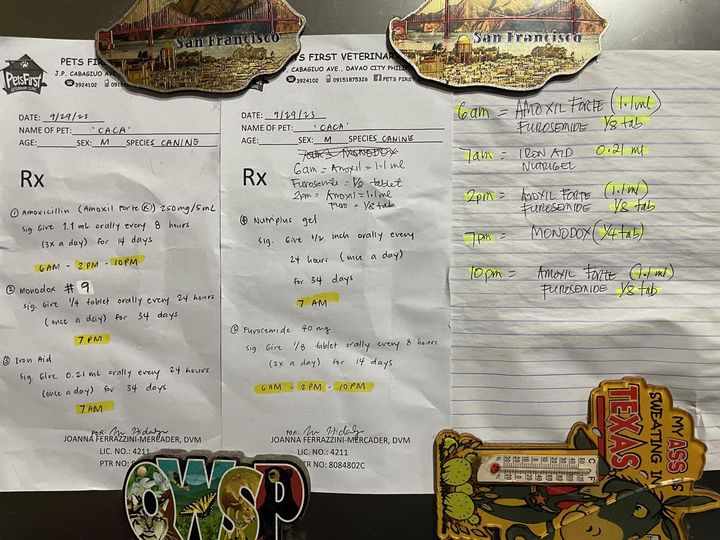 San Francisco
San Francisco
PetsFirst
PETS FI
J.P. CABAGIUO AVE
3924102
DATE: 9/29/23
NAME OF PET: 'CACA'
AGE: SEX: M SPECIES CANINE
Rx
① Amoxicillin (Amoxil Forte ®) 250mg/5mL
Sig Give 1.1 mL orally every 8 hours
(3x a day) for 14 days
6AM - 2PM - 10PM
② Monodox # 9
Sig. Give 1/4 tablet orally every 24 hours
(once a day) for 34 days
7 PM
③ Iron Aid
Sig Give 0.21 mL orally every 24 hours
(once a day) for 34 days
7 AM
JOANNA FERRAZZINI-MERCADER, DVM
LIC. NO.: 4211
PTR NO
S FIRST VETERINAR
. CABAGIUO AVE., DAVAO CITY PHILI
3924102 09151875326 PETS FIRST
DATE: 9/29/23
NAME OF PET: 'CACA'
AGE: SEX: M SPECIES CANINE
MONODOX
6am = Amoxil = 1.1 ml
Furosemide = 1/8 tablet
2pm = Amoxil = 1.1ml
Furo = 1/8 tab
Rx
④ Nutriplus gel
Sig. Give 1/2 inch orally every
24 hours (once a day)
for 34 days
7 AM
⑤ Furosemide 40 mg
Sig. Give 1/8 tablet orally every 8 hours
(3x a day) for 14 days
6AM - 2PM - 10PM
JOANNA FERRAZZINI-MERCADER, DVM
LIC. NO.: 4211
TR NO: 8084802C
6am = AMOXIL FORTE (1.1ml)
FUROSEMIDE 1/8 tab
7am = IRON AID 0.21 ml
NUTRIGEL
2pm = AMOXIL FORTE (1.1ml)
FUROSEMIDE 1/8 tab
7pm = MONODOX (1/4 tab)
10pm = AMOXIL FORTE (1.1ml)
FUROSEMIDE 1/8 tab
OWSP
MY ASS IS
SWEATING IN
TEXAS
C F